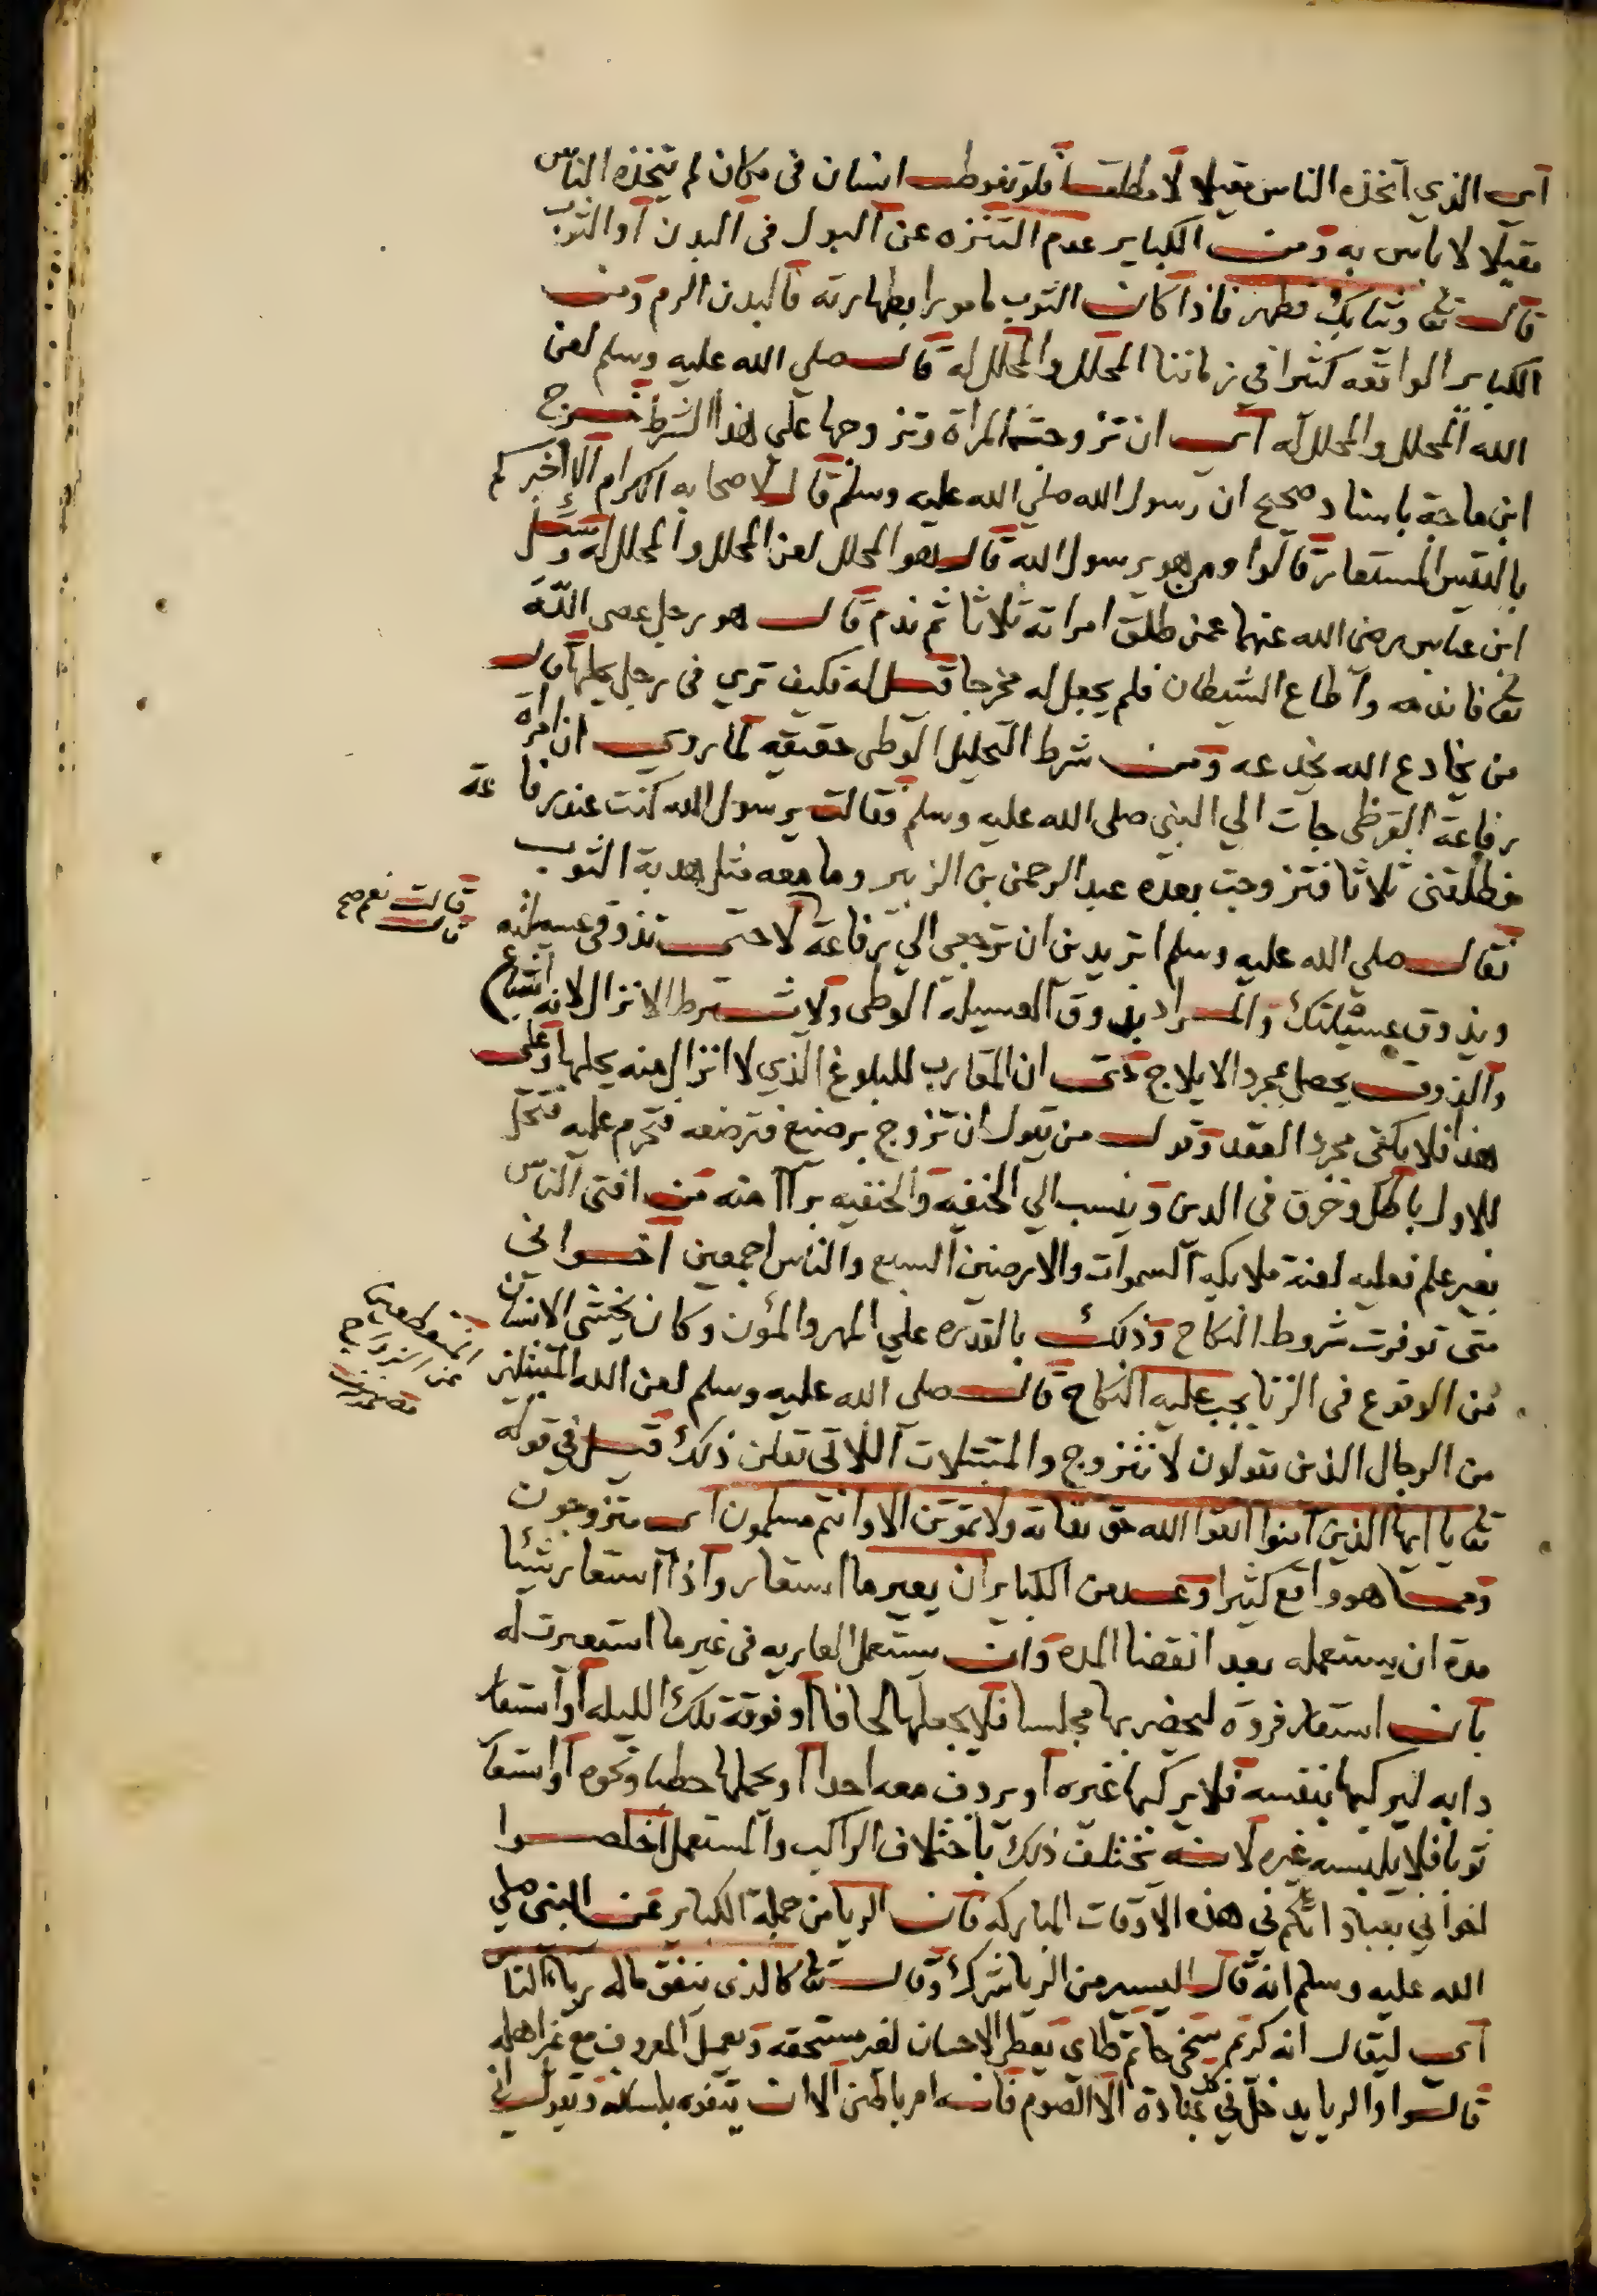 اى الذي اتخذه الناس مقيلا لا مطلقا فلو تغوط انسان فى مكان لم يتخذه الناس
مقيلا لا باس به ومن الكباير عدم التنزه عن البول فى البدن او الثوب
قال تعا وثيابك فطهر فاذا كان الثوب مامورا بطهارته فالبدن الزم ومن
الكباير الواقعه كثيرا في زماننا المحلل والمحلل له قال صلي الله عليه وسلم لعن
الله المحلل والمحلل له اى ان تزوجت المراة وتزوجها علي هذا الشرط خرج
ابن ماجة باسناد صحيح ان رسول الله صلي الله عليه وسلم قال لاصحابه الكرام الا اخبركم
بالتيس المستعار قالوا ومن هو يرسول الله قال هو المحلل لعن المحلل والمحلل له وسئل
ابن عباس رضى الله عنهما عمن طلق امراته ثلاثا ثم ندم قال هو رجل عصى الله
تعا فاندمه واطاع الشيطان فلم يجعل له مخرجا قيل له فكيف تري فى رجل يحلها قال
من يخادع الله يخدعه ومن شرط التحليل الوطى حقيقه لما روى ان امراة
رفاعة القرظى جات الي النبي صلى الله عليه وسلم فقالت يرسول الله كنت عند رفاعة
فطلقنى ثلاثا فتزوجت بعده عبد الرحمن بن الزبير وما معه مثل هدبة الثوب
فقال صلي الله عليه وسلم اتريدين ان ترجعى الي رفاعة لا حتى تذوقى عسيلته
قالت نعم صح
قال
ويذوق عسيلتك والمراد بذوق العسيلة الوطى ولا يشترط الانزال لانه اشباع
والذوق يحصل بمجرد الايلاج حتى ان المقارب للبلوغ الذي لا انزال منه يحلها وعلى
هذا فلا يكفى مجرد العقد وقول من يقول ان تزوج برضيع فترضعه فتحرم عليه فتحل
للاول باطل وخرق فى الدين وينسب الي الحنفيه والحنفيه براآ منه من افتى الناس
بغير علم فعليه لعنة ملايكه السموات والارضين السبع والناس اجمعين اخوانى
متى توفرت شروط النكاح وذلك بالقدره علي المهر والمؤن وكان يخشى الانسان
من الوقوع فى الزنا يجب عليه النكاح قال صلى الله عليه وسلم لعن الله المتبتلين
المنقطعين
عن الزواج
من الرجال الذين يقولون لا نتزوج والمتبتلات اللاتى تقلن ذلك قيل في قوله
تعا يا ايها الذين امنوا اتقوا الله حق تقاته ولا تموتن الا وانتم مسلمون اى متزوجون
ومما هو واقع كثيرا وعد من الكباير ان يعير ما استعار واذا استعار شيئا
مدة ان يستعمله بعد انقضا المده وان يستعمل العاريه فى غير ما استعيرت له
بان استعار فروة ليحضر بها مجلسا فلا يجعلها لحافا او فوقة تلك الليله او استعار
دابه ليركبها بنفسه فلا يركبها غيره او يردف معه احدا او يحملها حطبا ونحوه او استعا
ثوبا فلا يلبسه غيره لانه يختلف ذلك باختلاف الراكب والمستعمل اخلصوا
اخوانى بعباداتكم فى هذه الاوقات المباركه فان الريا من جملة الكباير عن النبى صلي
الله عليه وسلم انه قال اليسير من الريا شرك وقال تعا كالذى ينفق ماله رياء الناس
اى ليقال انه كريم سخى حاتم طاى يعطى الاحسان لغير مستحقه ويعمل المعروف مع غير اهله
قالوا والريا يدخل في كل عبادة الا الصوم فانه امر باطنى الا ان يتفوه بلسانه ويقول انى